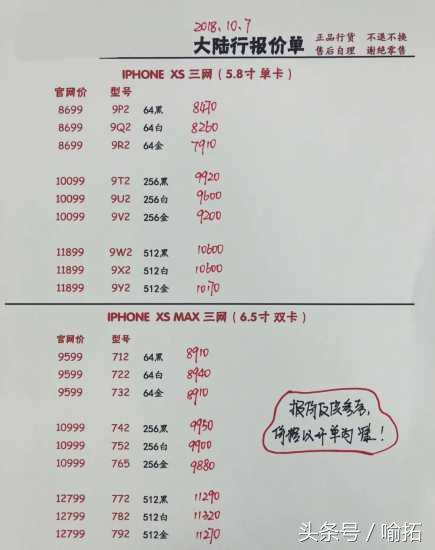 2018.10.7
大陆行报价单 正品行货 不退不换
售后自理 谢绝零售
IPHONE XS 三网(5.8寸 单卡)
官网价 型号
8699 9P2 64黑 8470
8699 9Q2 64白 8260
8699 9R2 64金 7910
10099 9T2 256黑 9920
10099 9U2 256白 9600
10099 9V2 256金 9200
11899 9W2 512黑 10600
11899 9X2 512白 10600
11899 9Y2 512金 10170
IPHONE XS MAX 三网(6.5寸 双卡)
官网价 型号
9599 712 64黑 8910
9599 722 64白 8940
9599 732 64金 8910
10999 742 256黑 9950
10999 752 256白 9900
10999 765 256金 9880
12799 772 512黑 11290
12799 782 512白 11320
12799 792 512金 11270
报价仅度参考,
价格以开单为准!
头条号 / 喻拓